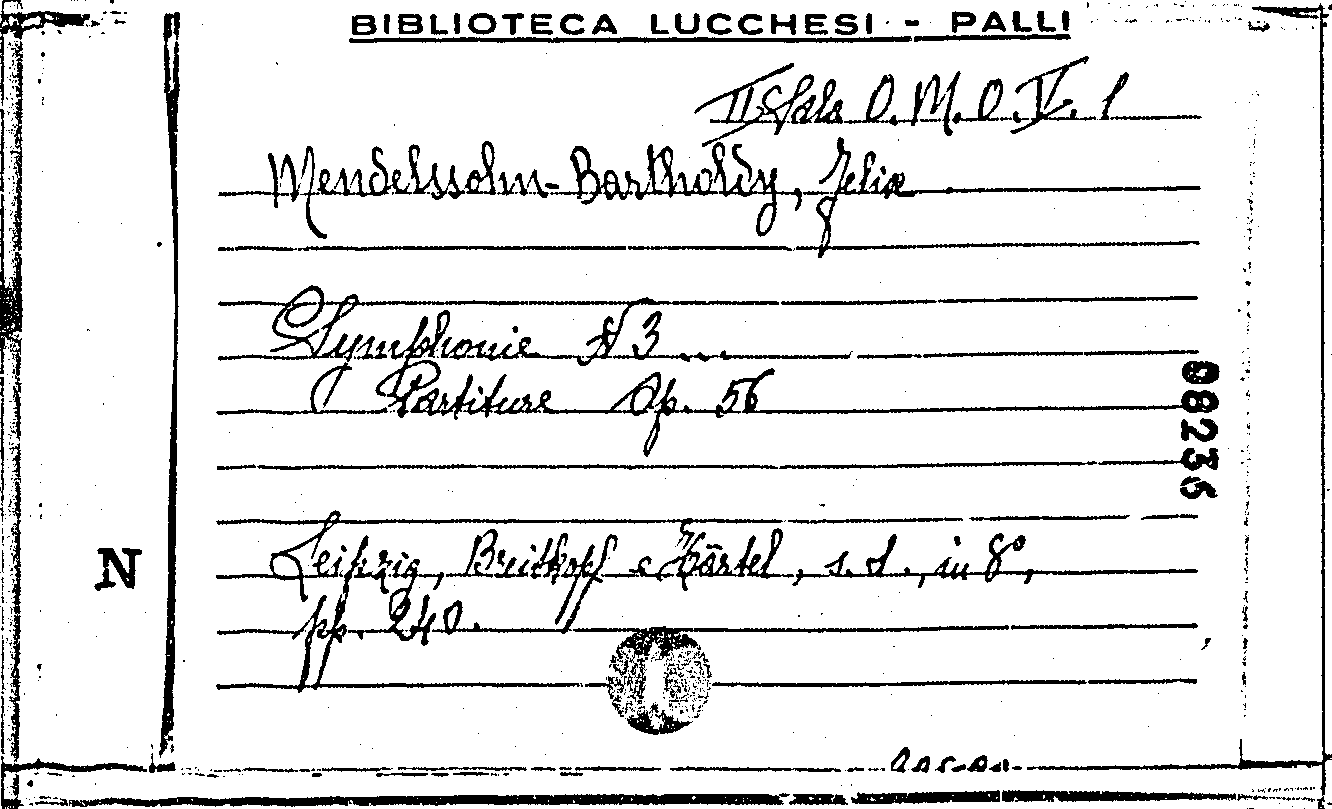 BIBLIOTECA LUCCHESI - PALLI
II Sala O. M. O. IV. 1
Mendelssohn-Bartholdy, Felix
Symphonie N 3 ...
Partiture Op. 56
08236
N
Leipzig, Breitkopf e Härtel, s. d., in 8°,
pp. 240.